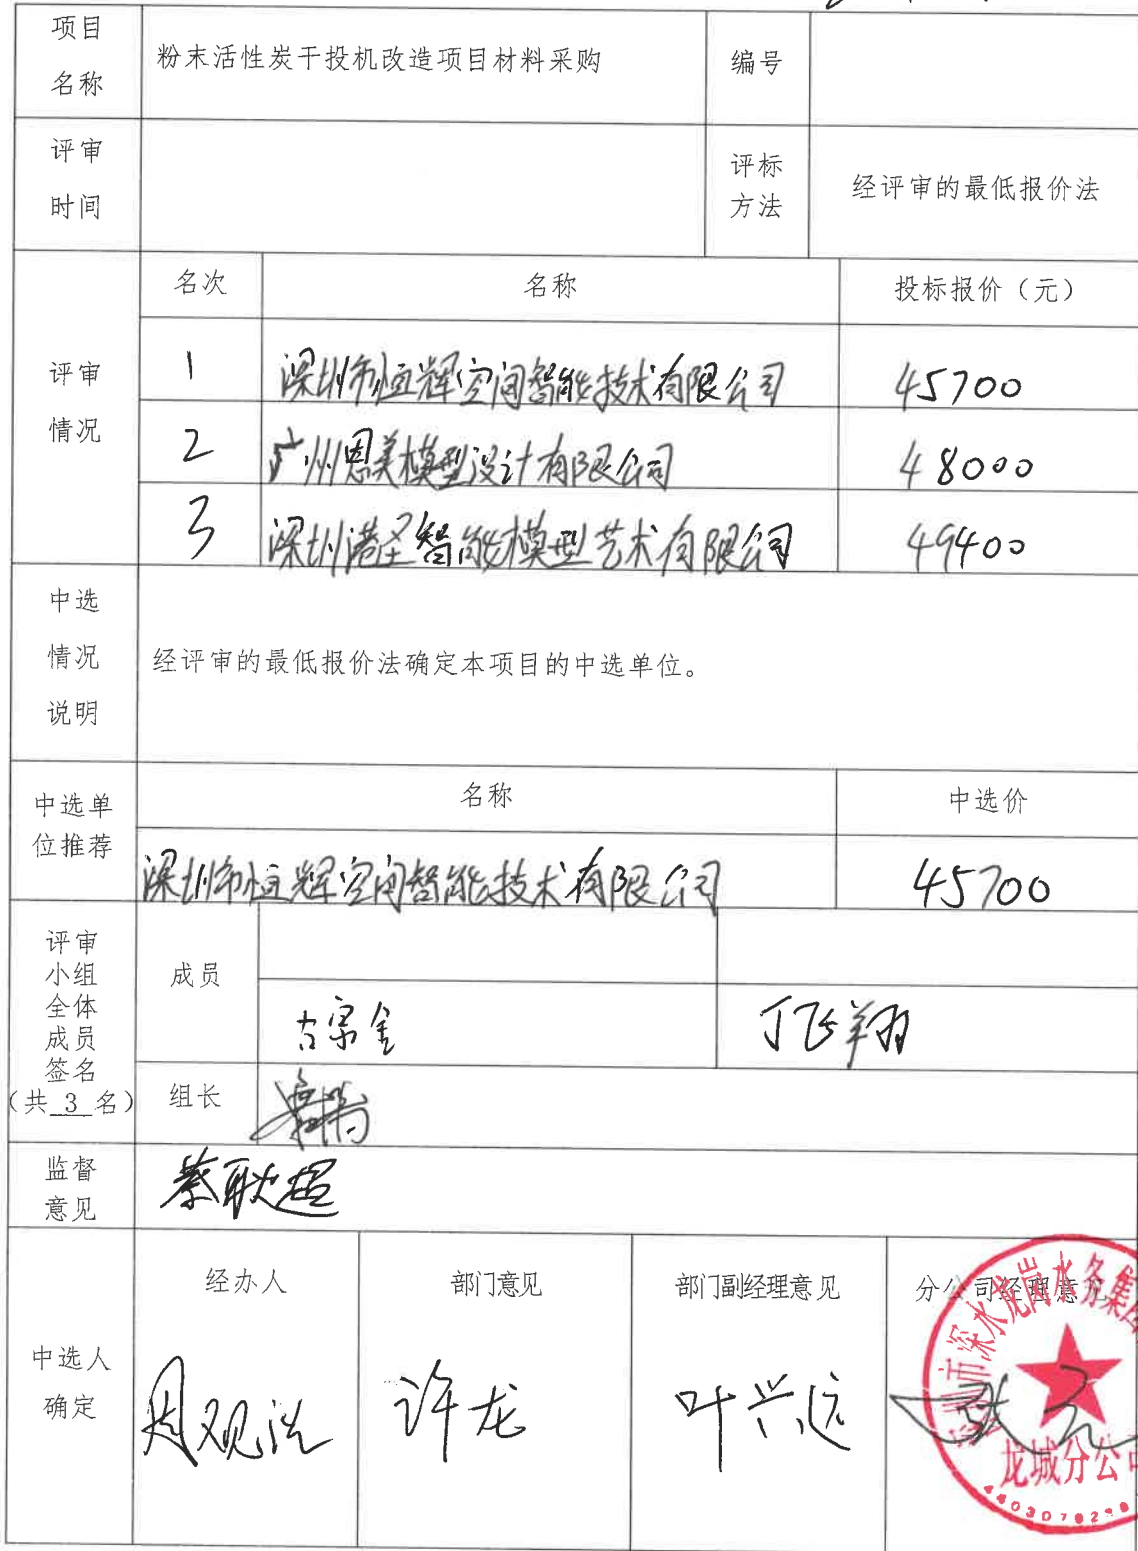 项目
名称
粉末活性炭干投机改造项目材料采购
编号
评审
时间
评标
方法
经评审的最低报价法
评审
情况
名次 名称 投标报价（元）
1 深圳市恒辉空间智能技术有限公司 45700
2 广州恩美模型设计有限公司 48000
3 深圳港圣智能模型艺术有限公司 49400
中选
情况
说明
经评审的最低报价法确定本项目的中选单位。
中选单
位推荐
名称 中选价
深圳市恒辉空间智能技术有限公司 45700
评审
小组
全体
成员
签名
（共 3 名）
成员
古宗金 丁飞翔
组长
监督
意见
蔡耿超
中选人
确定
经办人 部门意见 部门副经理意见 分公司经理意见
周观洪 许龙 叶兴远
市深水龙岗水务集团
龙城分公司